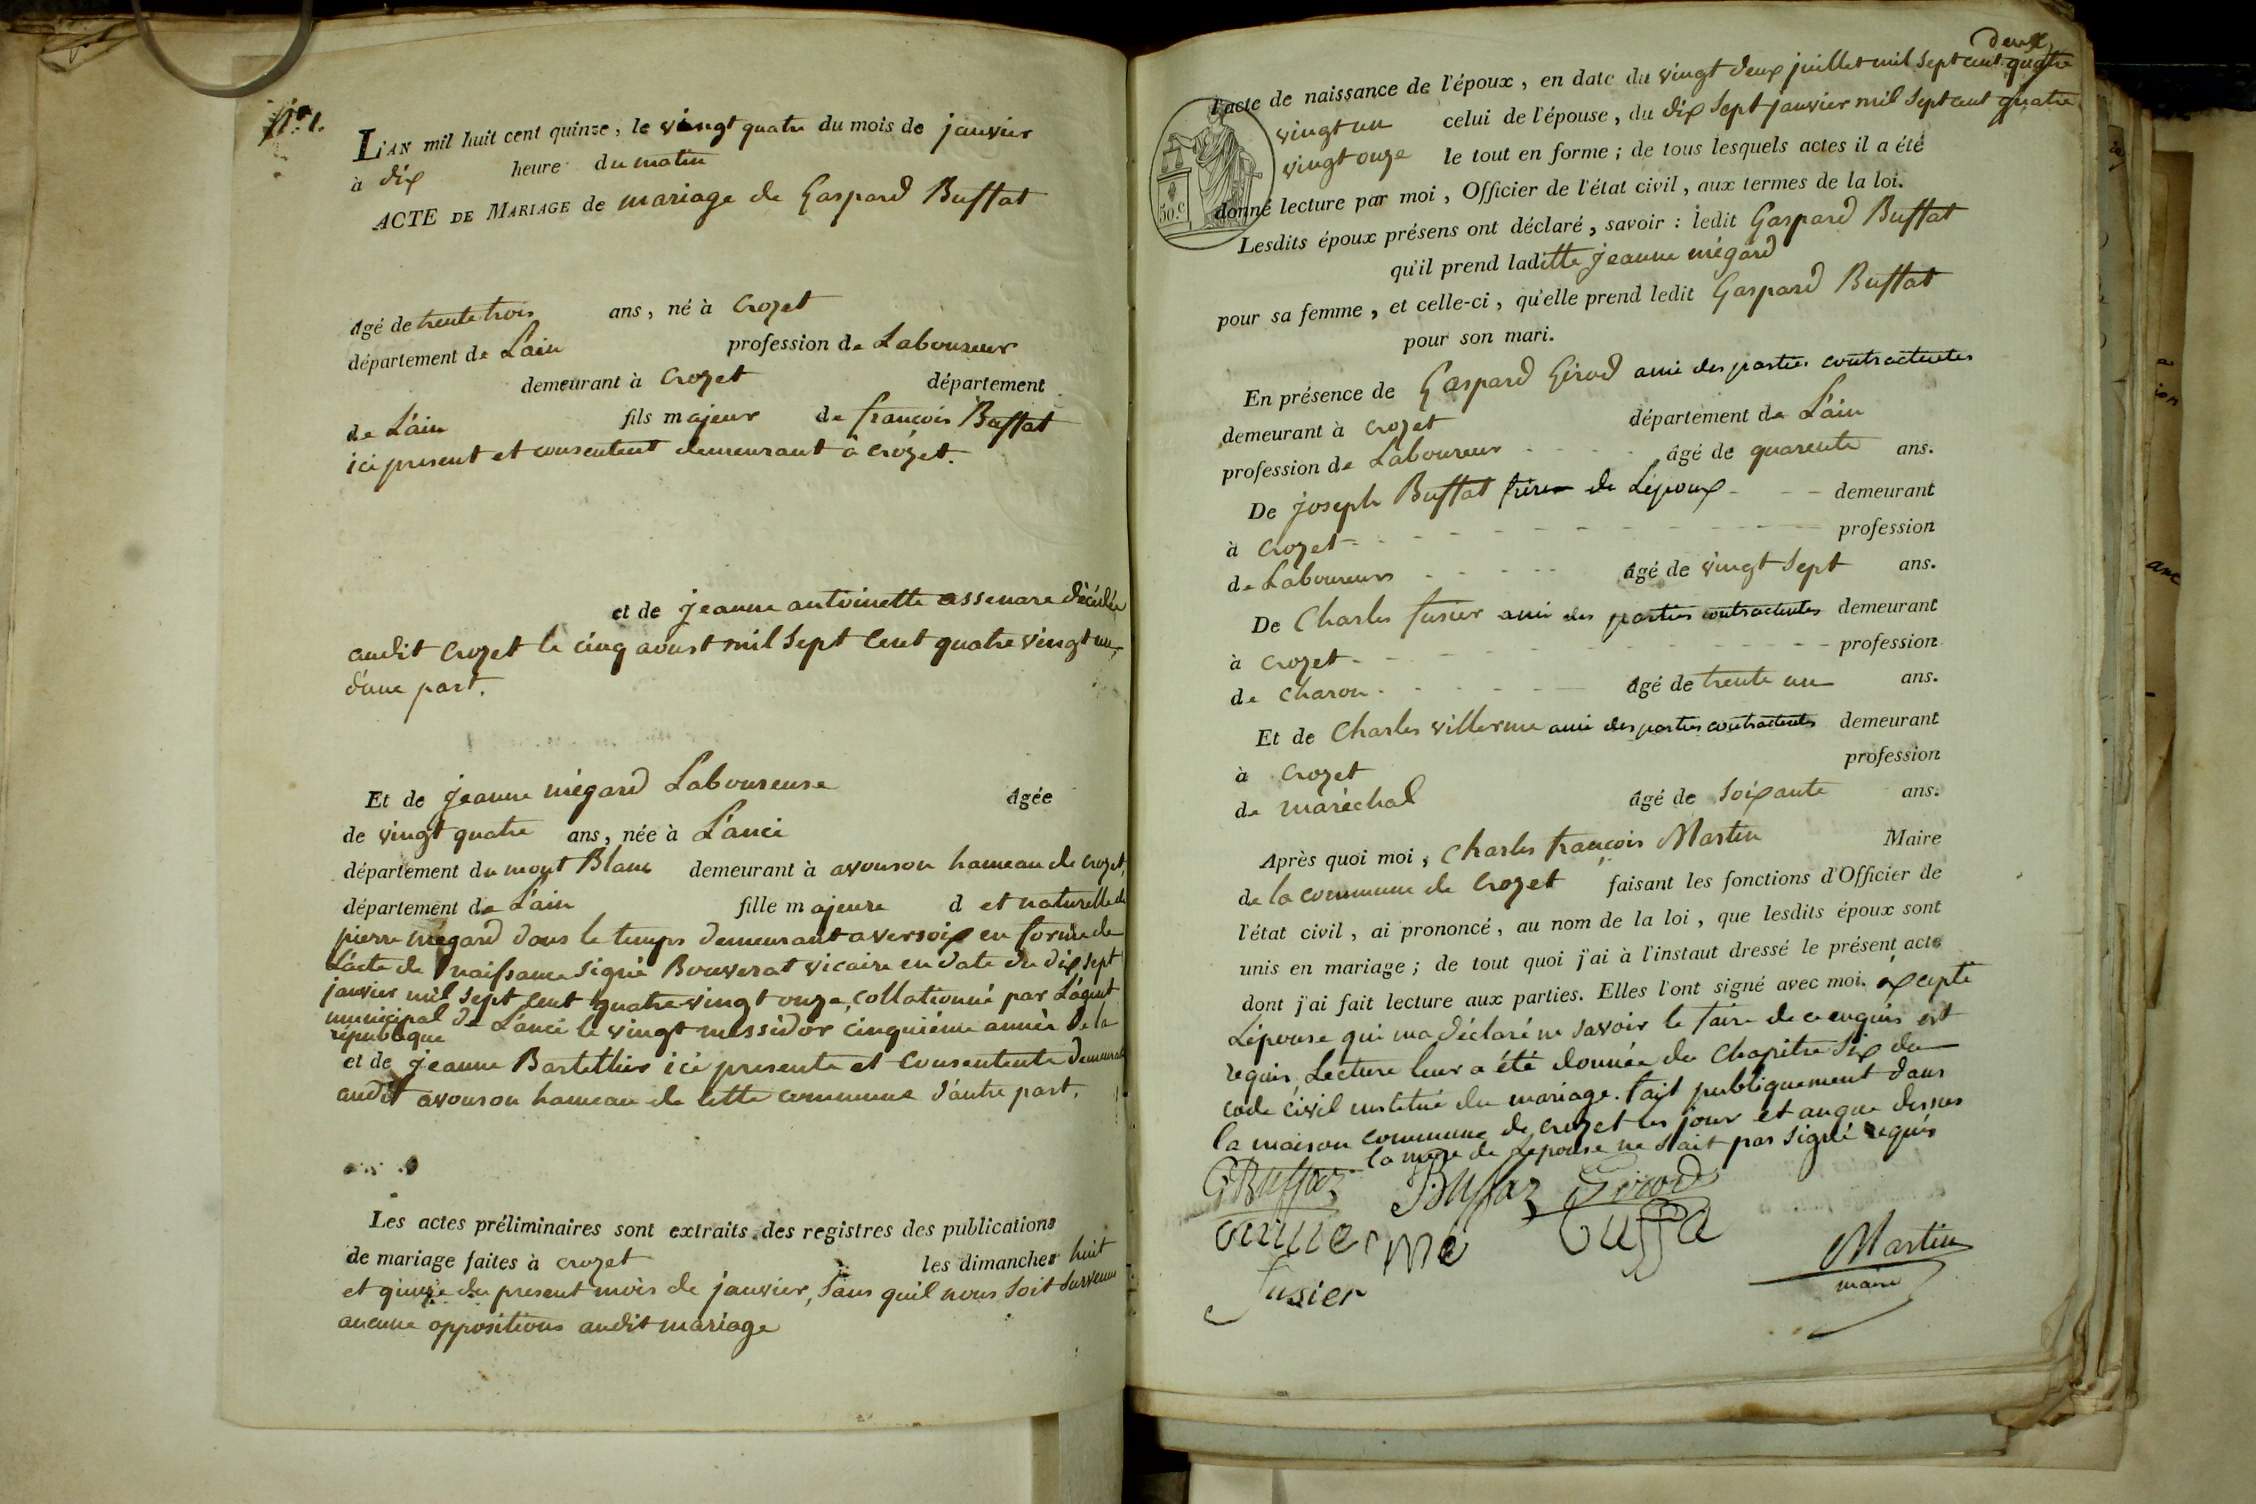 N.° 1.
L'AN mil huit cent quinze, le vingt quatre du mois de janvier
à dix heure du matin
ACTE DE MARIAGE de mariage de Gaspard Buffat
âgé de trente trois ans, né à Crozet
département de L'ain profession de Laboureur
demeurant à Crozet département
de L'ain fils majeur de françois Buffat
ici present et consentent demeurant à Crozet.
et de jeanne antoinette assenare décédée
audit Crozet le cinq aoust mil sept Cent quatre vingt un,
d'une part.
Et de jeanne mégard Laboureuse âgée
de vingt quatre ans, née à L'anci
département du mont Blanc demeurant à avouson hameau de crozet,
département de L'ain fille majeure d et naturelle de
pierre mégard dans le temps demeurant a versoix en forme de
L'acte de naissance signé Bouverat vicaire en date du dix sept
janvier mil sept cent quatre vingt onze, collationné par L'agent
municipal de L'anci le vingt messidor cinquiéme année de la
républoque
et de jeanne Bartethier ici presente et Consentente demeurant
audit avouson hameau de cette commune d'autre part.
Les actes préliminaires sont extraits des registres des publications
de mariage faites à crozet les dimanches huit
et quinze du present mois de janvier, sans quil nous soit survenu
aucune oppositions audit mariage
deux
l'acte de naissance de l'époux, en date du vingt deux juillet mil sept cent quatre
vingt un celui de l'épouse, du dix sept janvier mil sept cent quatre
vingt onze le tout en forme; de tous lesquels actes il a été
50.c
donné lecture par moi, Officier de l'état civil, aux termes de la loi.
Lesdits époux présens ont déclaré, savoir: ledit Gaspard Buffat
qu'il prend laditte jeanne mégard
pour sa femme, et celle-ci, qu'elle prend ledit Gaspard Buffat
pour son mari.
En présence de Gaspard Girod ami des parties contractentes
demeurant à Crozet département de L'ain
profession de Laboureur âgé de quarente ans.
De joseph Buffat frère de L'époux demeurant
à Crozet profession
de Laboureur âgé de vingt sept ans.
De Charles fusier ami des parties contractentes demeurant
à Crozet profession
de charon âgé de trente un ans.
Et de Charles villerme ami des parties contractents demeurant
à Crozet profession
de maréchal âgé de soixante ans.
Après quoi moi, Charles françois Martin Maire
de la commune de Crozet faisant les fonctions d'Officier de
l'état civil, ai prononcé, au nom de la loi, que lesdits époux sont
unis en mariage; de tout quoi j'ai à l'instant dressé le présent acte
dont j'ai fait lecture aux parties. Elles l'ont signé avec moi. excepté
L'épouse qui ma déclaré ne savoir le faire de ce enquis et
requis, Lecture leur a été donnée du Chapitre six du
code civil institué du mariage. fait publiquement dans
la maison commune de crozet les jour et an que dessus
la mere de Lepouse ne sait pas signé requis
G Buffaz Buffaz Girod
villerme Buffa
Martin
maire
fusier